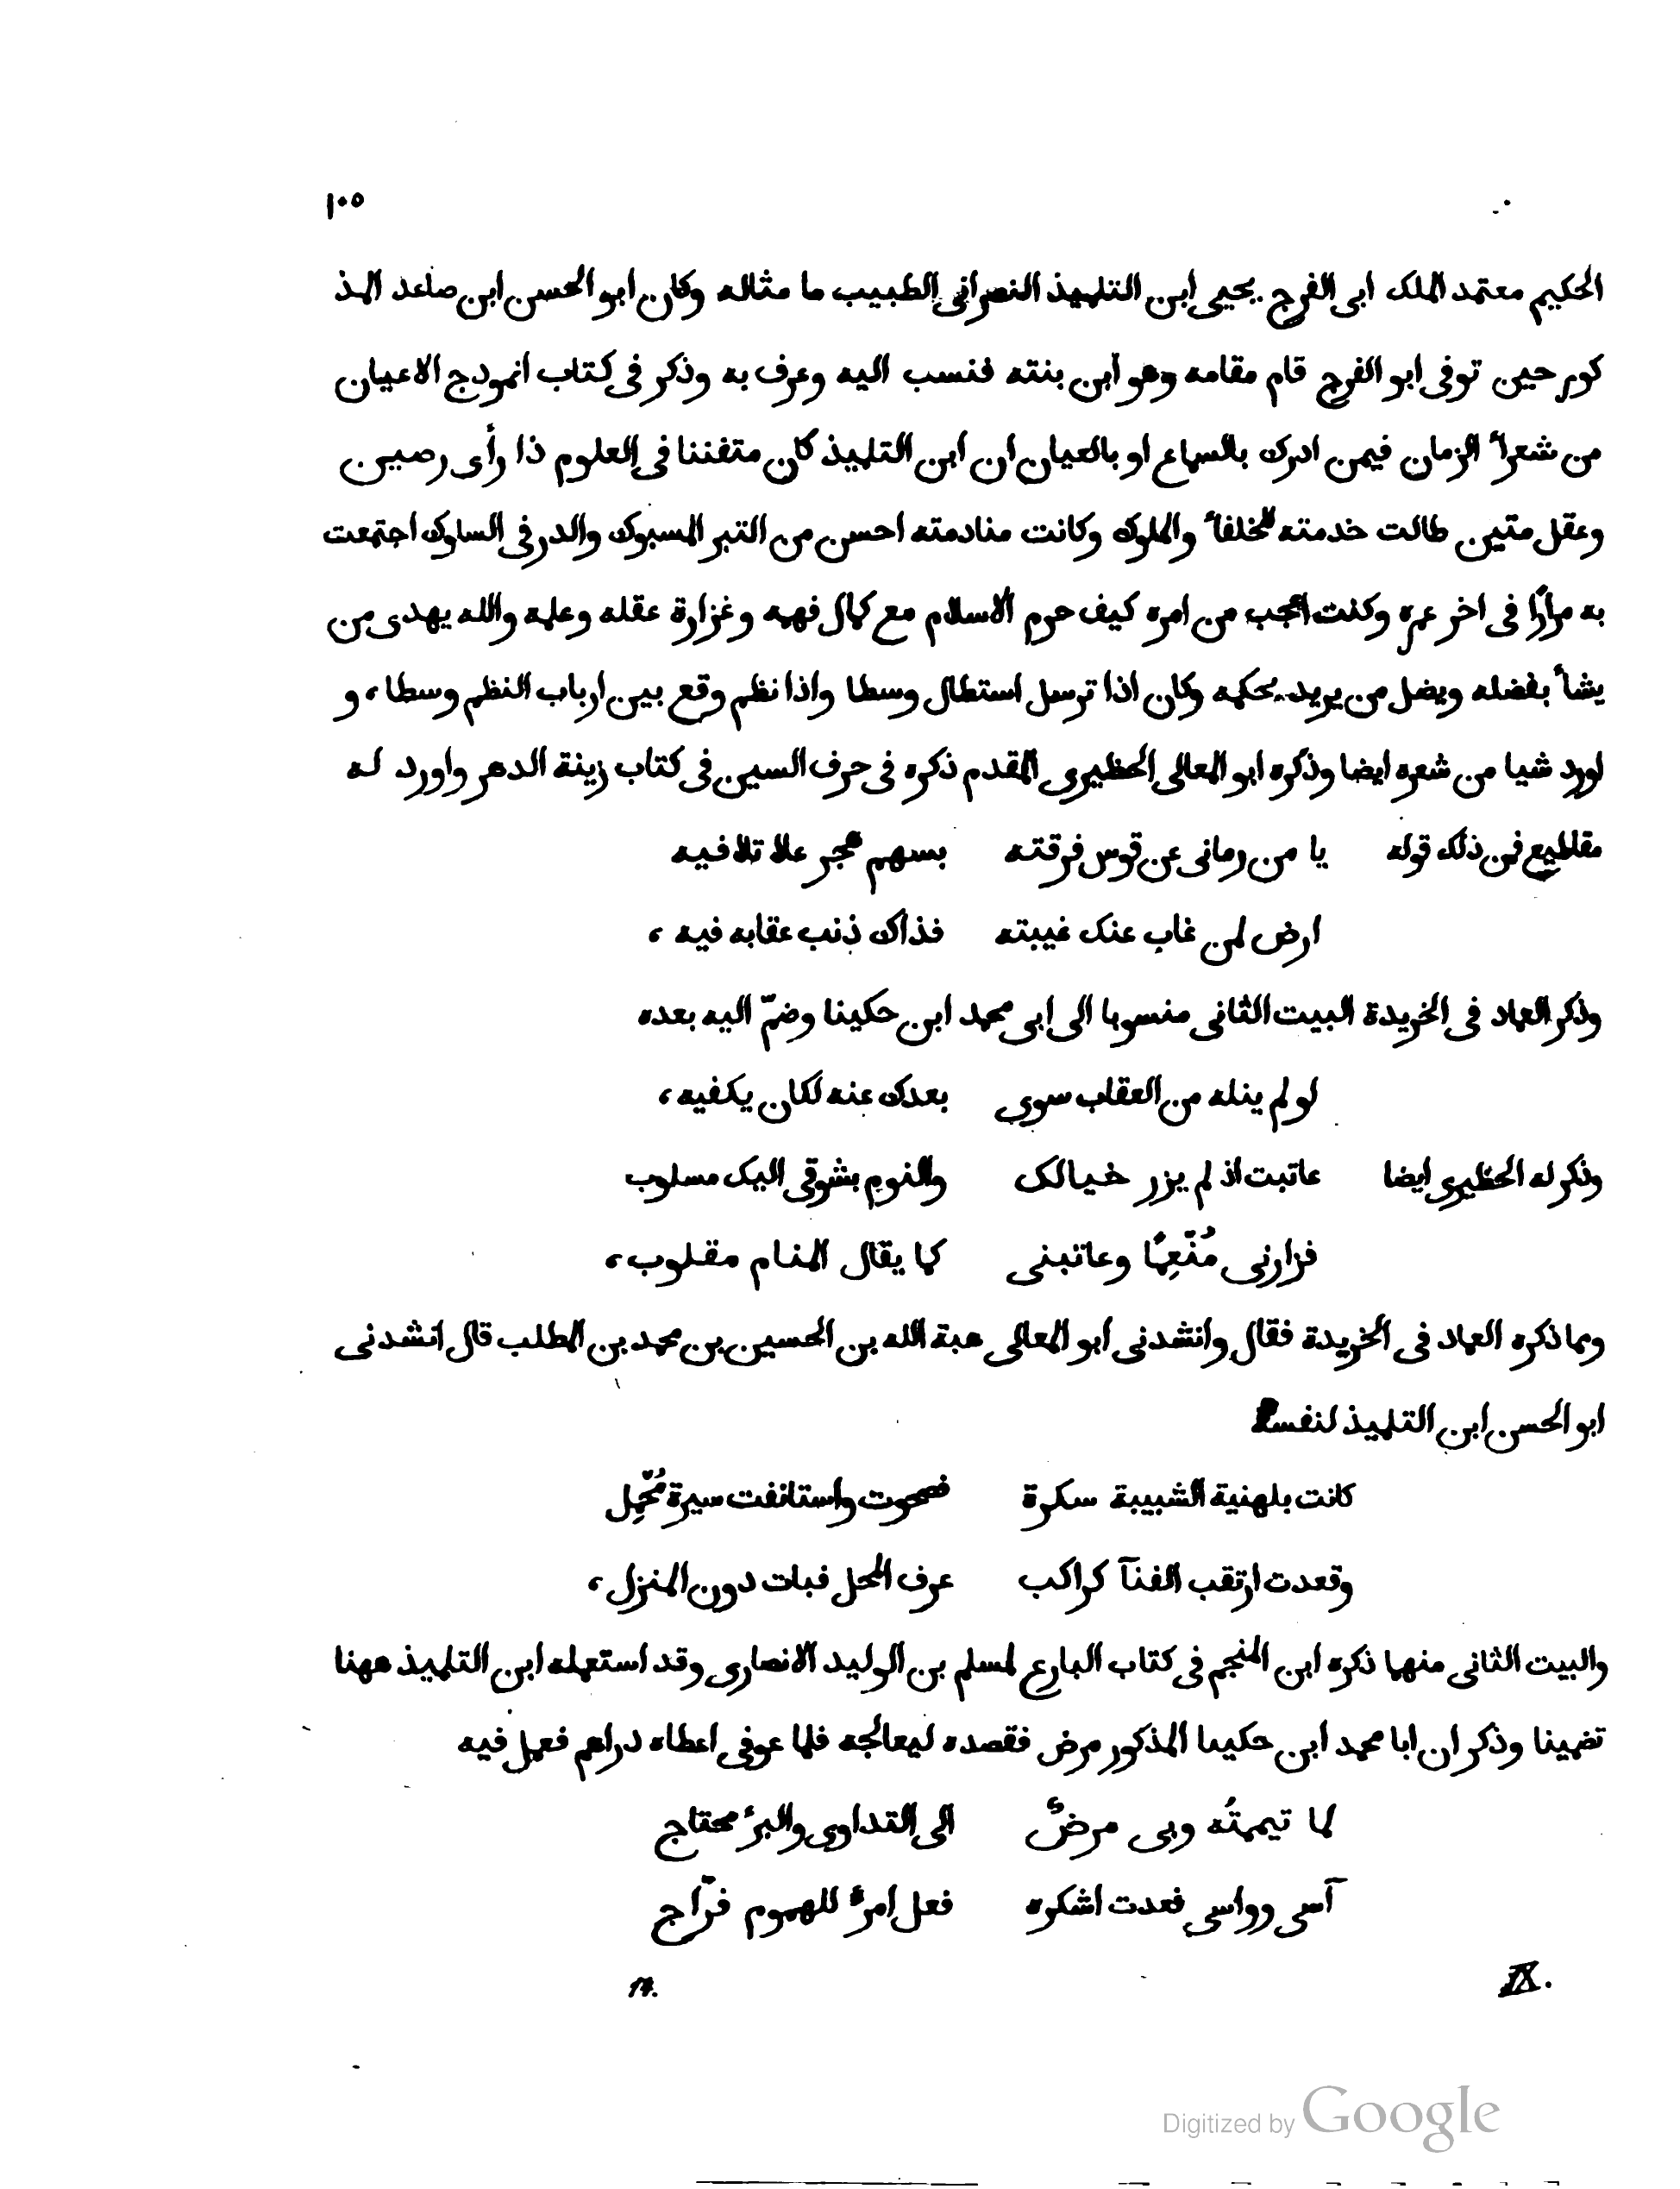 ١٠٥
الحكيم معتمد الملك ابى الفرج يحيى ابن التلميذ النصرانى الطبيب ما مثاله وكان ابو الحسن ابن صاعد المذ
كور حين توفى ابو الفرج قام مقامه وهو ابن بنته فنسب اليه وعرف به وذكر فى كتاب انموذج الاعيان
من شعرآ الزمان فيمن ادرك بالسماع او بالعيان ان ابن التلميذ كان متفننا فى العلوم ذا رأى رصين
وعقل متين طالت خدمته للخلفآ والملوك وكانت منادمته احسن من التبر المسبوك والدر فى السلوك اجتمعت
به مرارًا فى اخر عمره وكنت اعجب من امره كيف حرم الاسلام مع كمال فهمه وغزارة عقله وعلمه والله يهدى من
يشآ بفضله ويضل من يريد بحكمه وكان اذا ترسل استطال وسطا واذا نظم وقع بين ارباب النظم وسطا، و
اورد شيا من شعره ايضا وذكره ابو المعالى الحظيرى المقدم ذكره فى حرف السين فى كتاب زينة الدهر واورد له
مقاطيع فمن ذلك قوله يا من رمانى عن قوس فرقته بسهم هجر علا تلافيه
ارض لمن غاب عنك غيبته فذاك ذنب عقابه فيه،
وذكر العماد فى الخريدة البيت الثانى منسوبا الى ابى محمد ابن حكينا وضمّ اليه بعده
لو لم ينله من العقاب سوى بعدك عنه لكان يكفيه،
وذكر له الحظيرى ايضا عاتبت اذ لم يزر خيالك والنوم بشوقى اليك مسلوب
فزارنى مُنْعِمًا وعاتبنى كما يقال المنام مقلوب،
ومما ذكره العماد فى الخريدة فقال وانشدنى ابو المعالى هبة الله بن الحسين بن محمد بن المطلب قال انشدنى
ابو الحسن ابن التلميذ لنفسه
كانت بلهنية الشبيبة سكرة فصحوت واستانفت سيرة مُجْمِل
وقعدت ارتقب الفنآ كراكب عرف المحل فبات دون المنزل،
والبيت الثانى منهما ذكره ابن المنجم فى كتاب البارع لمسلم بن الوليد الانصارى وقد استعمله ابن التلميذ ههنا
تضمينا وذكر ان ابا محمد ابن حكينا المذكور مرض فقصده ليعالجه فلما عوفى اعطاه دراهم فعمل فيه
لما تيممتُه وبى مرضٌ الى التداوى والبرءِ محتاج
آسى وواسى فعدت اشكره فعل امرءٍ للهموم فرّاج
IX.
١٤.
Digitized by Google